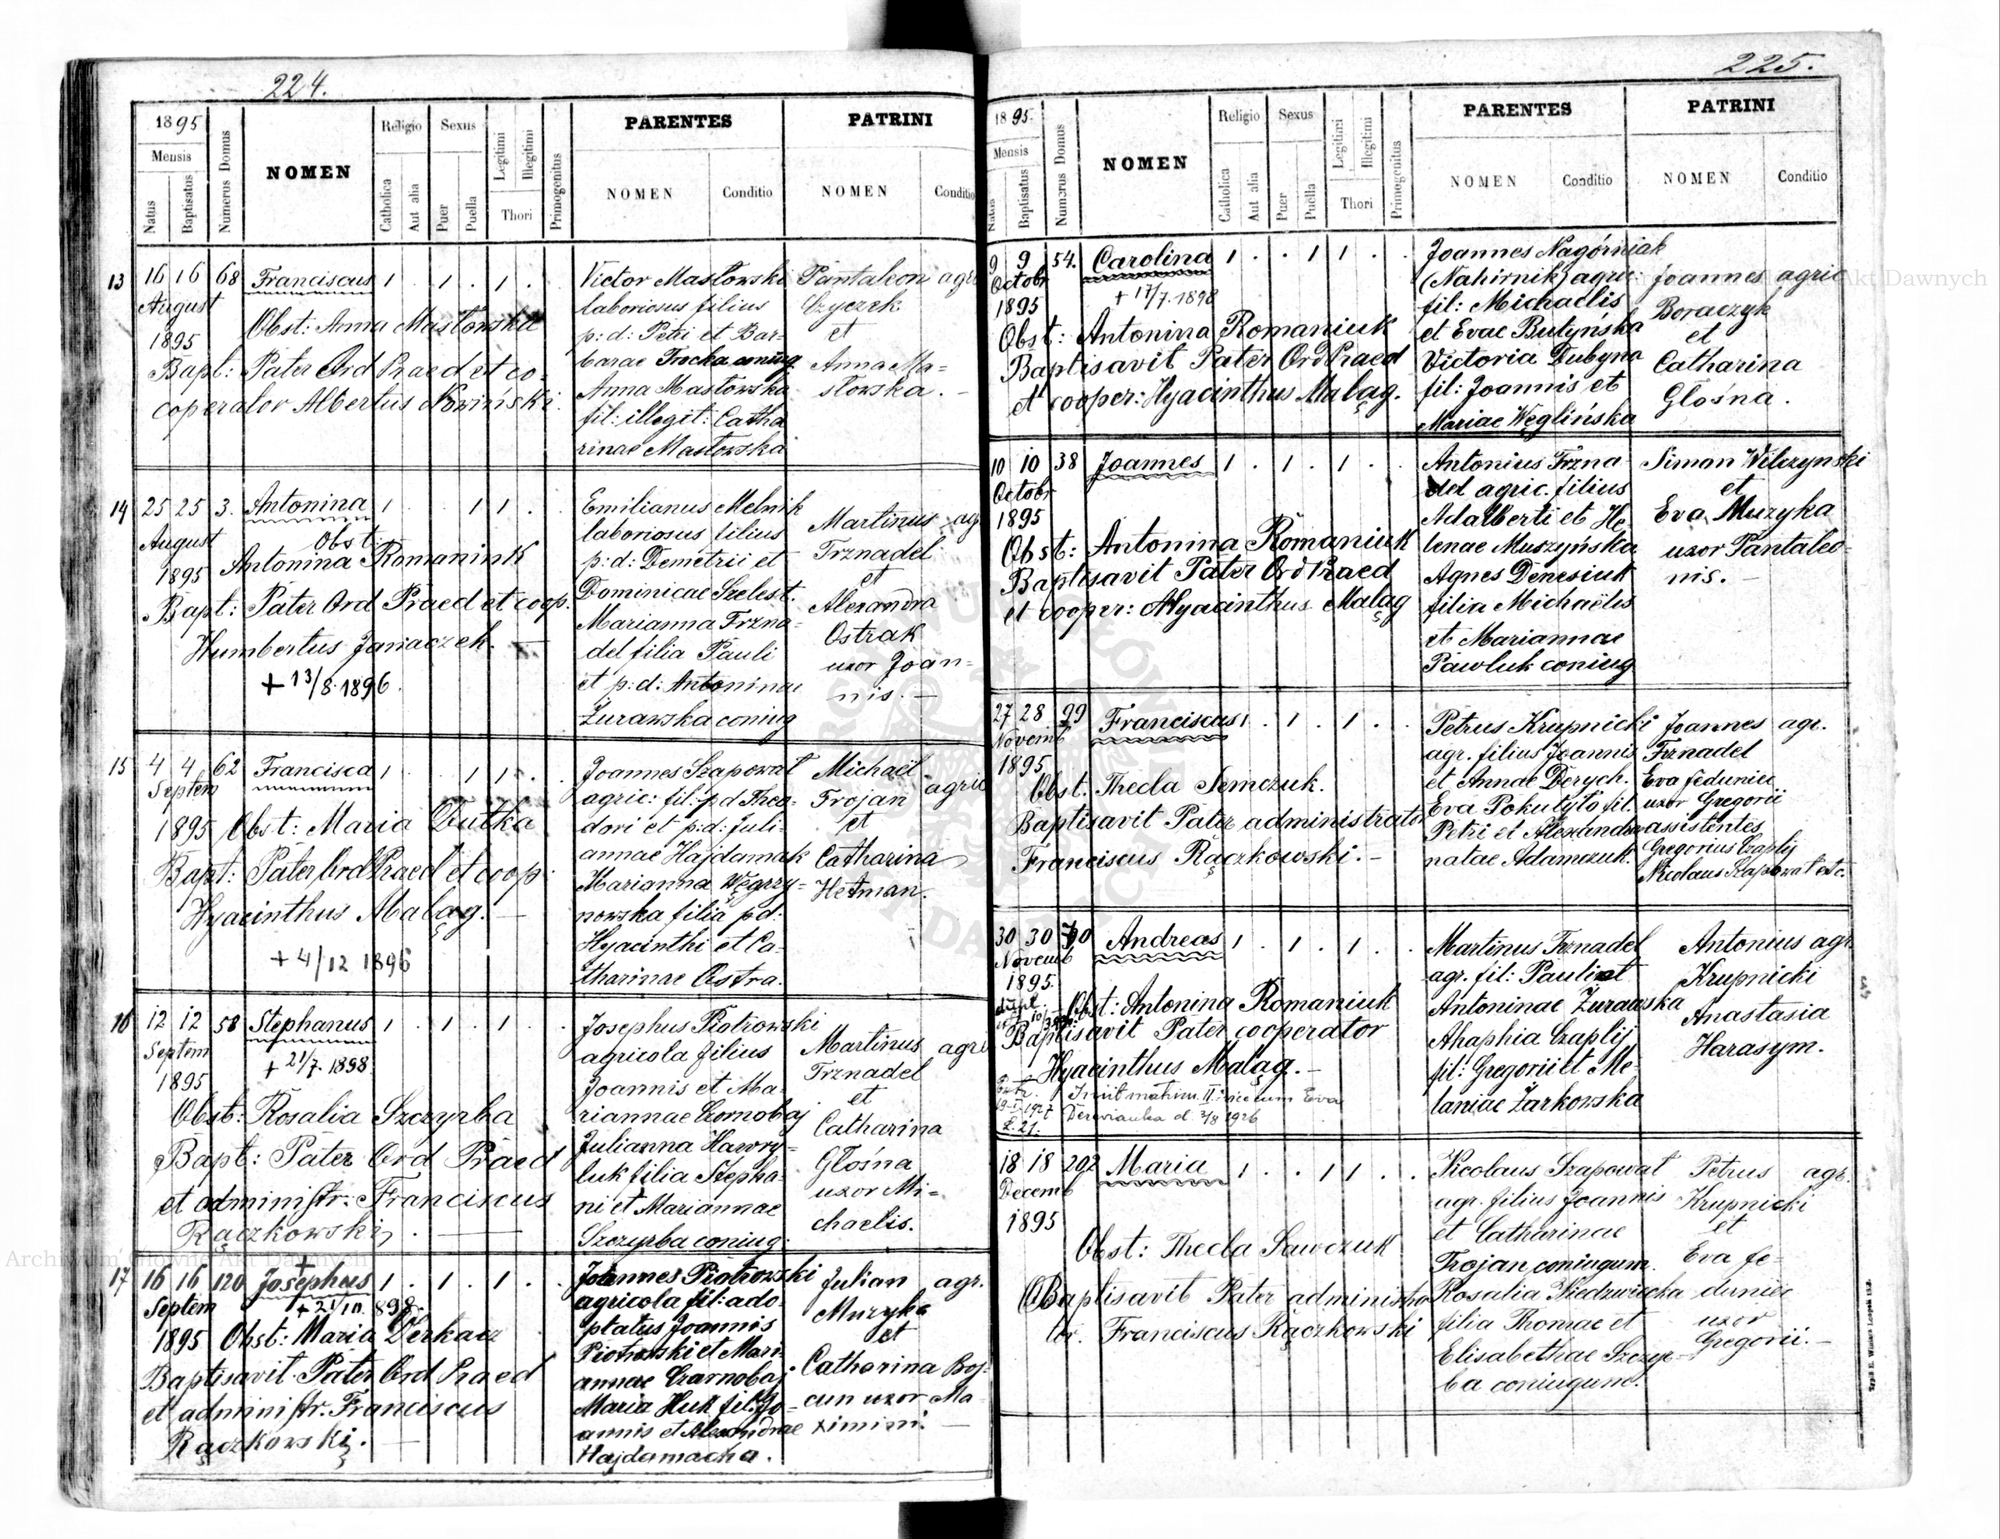 224.
1895
Mensis
Natus
Baptisatus
Numerus Domus
NOMEN
Religio
Catholica
Aut alia
Sexus
Puer
Puella
Legitimi
Illegitimi
Thori
Primogenitus
PARENTES
NOMEN
Conditio
PATRINI
NOMEN
Conditio
13
16 16 68 Franciscus 1 . 1 . 1 .
August
1895
Obst: Anna Masłowska
Bapt: Pater Ord Praed et co-
coperator Albertus Nowiński.
Victor Masłowski
laboriosus filius
p: d: Petri et Bar-
barae Trocka coniug
Anna Masłowska
fil: illegit: Catha
rinae Masłowska
Pantaleon agri
Czyczek
et
Anna Ma-
słowska. -
14
25 25 3. Antonina 1 . . 1 1 .
August
1895
Obst:
Antonina Romaniuk
Bapt: Pater Ord Praed et coop.
Humbertus Janaczek. —
+ 13/8. 1896.
Emilianus Melnik
laboriosus filius
p: d: Demetrii et
Dominicae Szelest.
Marianna Trzna-
del filia Pauli
et p: d: Antoninae
Żurawska coniug
Martinus agr
Trznadel
et
Alexandra
Ostrak
uxor Joan-
nis. —
15
4 4 62 Francisca 1 . . 1 1 .
Septem
1895 Obst: Maria Dutka
Bapt: Pater Ord Praed et coop
Hyacinthus Maląg. —
+ 4/12 1896
Joannes Szapowat
agric: fil: pd Theo-
dori et p: d: Juli-
annae Hajdamak
Marianna Węgrzy-
nowska filia pd:
Hyacinthi et Ca-
tharinae Ostra.
Michaël agric
Trojan
et
Catharina
Hetman.
16
12 12 58 Stephanus 1 . 1 . 1 . .
Septem
1895
+ 21/7. 1898
Obst: Rosalia Szczyrba
Bapt: Pater Ord Praed
et administr: Franciscus
Rączkowski. —
Josephus Piotrowski
agricola filius
Joannis et Ma-
riannae Czornobaj
Julianna Hawry-
luk filia Stepha-
ni et Mariannae
Szczyrba coniug.
Martinus agri
Trznadel
et
Catharina
Głośna
uxor Mi-
chaelis.
17
16 16 120 Josephus 1 . 1 . 1 . .
Septem
+ 21/10. 898.
1895 Obst: Maria Derkacz
Baptisavit Pater Ord Praed
et administr: Franciscus
Rączkowski. —
Joannes Piotrowski
agricola fil: ado-
ptatus Joannis
Piotrowski et Mari
annae Czarnobaj
Maria Huk fil: Jo-
annis et Alexandrae
Hajdamacha.
Julian agr.
Muzyka
et
Catharina Boj-
cun uxor Ma-
ximini. —
225.
1895.
Mensis
Natus
Baptisatus
Numerus Domus
NOMEN
Religio
Catholica
Aut alia
Sexus
Puer
Puella
Legitimi
Illegitimi
Thori
Primogenitus
PARENTES
NOMEN
Conditio
PATRINI
NOMEN
Conditio
9 9 54. Carolina 1 . . 1 1 . .
Octobr
1895
+ 17/7. 1898
Obst: Antonina Romaniuk
Baptisavit Pater Ord Praed
et cooper: Hyacinthus Maląg.
Joannes Nagórniak
(Nahirnik) agric
fil: Michaëlis
et Evae Butyńska
Victoria Dubyna
fil: Joannis et
Mariae Węglińska
Joannes agric
Boraczyk
et
Catharina
Głośna.
10 10 38 Joannes 1 . 1 . 1 . .
Octobr
1895
Obst: Antonina Romaniuk
Baptisavit Pater Ord Praed
et cooper: Hyacinthus Maląg
Antonius Trzna
del agric. filius
Adalberti et He-
lenae Muszyńska
Agnes Denesiuk
filia Michaëlis
et Mariannae
Pawluk coniug
Simon Wilczynski
et
Eva Muzyka
uxor Pantaleo-
nis. -
27 28 99 Franciscus 1 . 1 . 1 . .
Novemb
1895
Obst. Thecla Semczuk.
Baptisavit Pater administrator
Franciscus Rączkowski. -
Petrus Krupnicki
agr. filius Joannis
et Annae Derych.
Eva Pokutyło fil.
Petri et Alexandrae
natae Adamczuk.
Joannes agr.
Trznadel
Eva Feduniec
uxor Gregorii
assistentes
Gregorius Czaplij
Nicolaus Szapowat etc.
30 30 70 Andreas 1 . 1 . 1 . .
Novemb
1895.
Obst: Antonina Romaniuk
Baptisavit Pater cooperator
Hyacinthus Maląg. -
Iniit matrim. II. vice cum Eva
Derewianka d. 2/8 1926
Martinus Trznadel
agr. fil: Pauli et
Antoninae Żurawska
Ahaphia Czaplij
fil: Gregorii et Me-
laniae Żarkowska
Antonius agr.
Krupnicki
Anastasia
Harasym.
18 18 202 Maria 1 . . 1 1 . .
Decemb
1895
Obst: Thecla Sawczuk
Baptisavit Pater administra-
tor. Franciscus Rączkowski
Nicolaus Szapowat
agr. filius Joannis
et Catharinae
Trojan coniugum.
Rosalia Niedzwiacka
filia Thomae et
Elisabethae Szczyr-
ba coniugum.
Petrus agr.
Krupnicki
et
Eva Fe-
duniec
uxor
Gregorii. —
Archiwum Główne Akt Dawnych